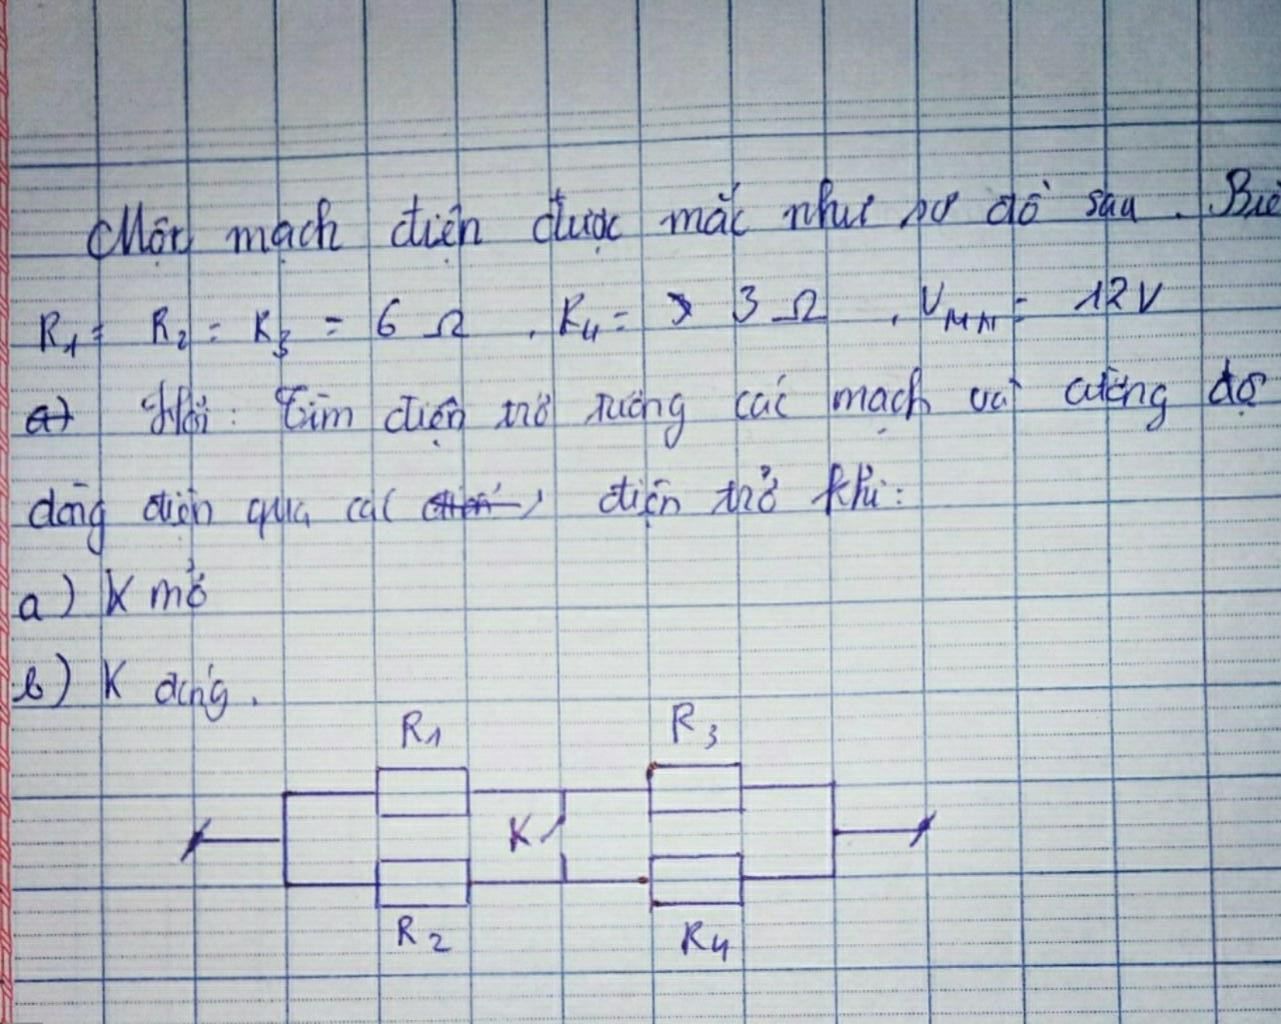 Một mạch điện được mắc như sơ đồ sau. Biế
R1 = R2 = R3 = 6 Ω , R4 = 3 Ω , UMN = 12V
a) Hỏi: Tìm điện trở tương các mạch và cường độ
dòng điện qua các điện trở khi:
a) K mở
b) K đóng.
R1 R3
K
R2 R4